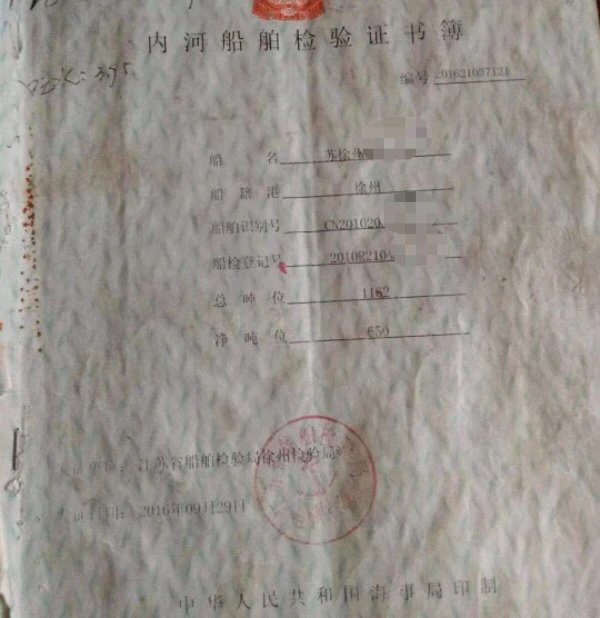 内河船舶检验证书簿
编号 201621037121
船名 苏徐州
船籍港 徐州
船舶识别号 CN201020
船检登记号 2010R210
总吨位 1162
净吨位 650
发证单位：江苏省船舶检验局徐州检验局
发证日期：2016年09月29日
中华人民共和国海事局印制